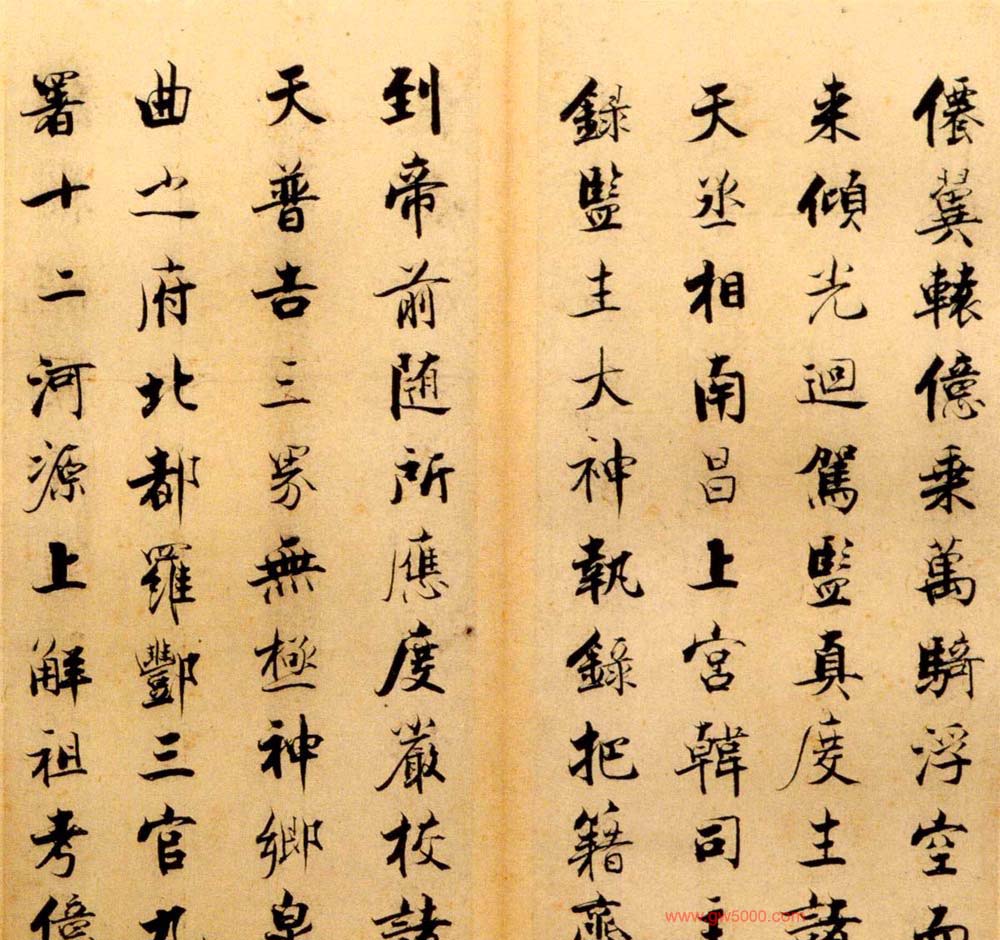 僊翼轅億乗萬騎浮空而
来傾光迴駕監真度主諸
天丞相南昌上宮韓司主
録監主大神執録把籍齊
到帝前随所應度嚴校諸
天普告三界無極神卿泉
曲之府北都羅酆三官九
署十二河源上解祖考億
www.gw5000.com